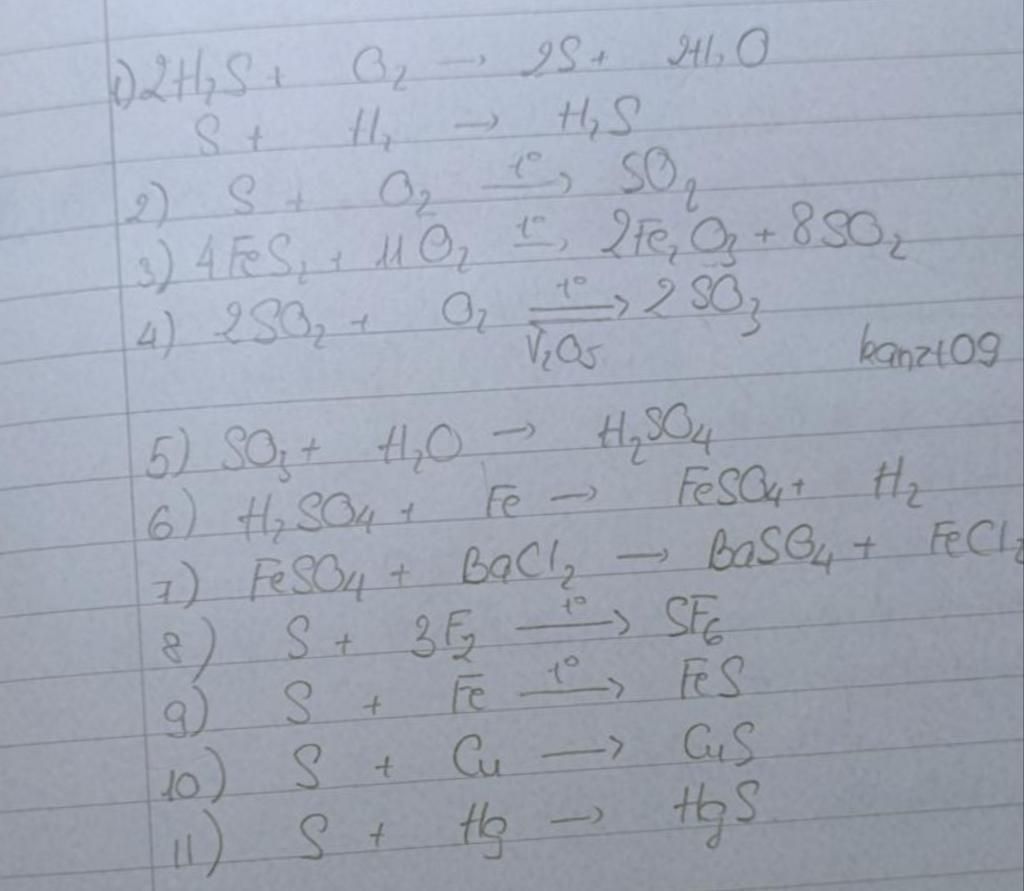 1) 2H₂S + O₂ → 2S + 2H₂O
S + H₂ → H₂S
2) S + O₂ —t°→ SO₂
3) 4FeS₂ + 11O₂ —t°→ 2Fe₂O₃ + 8SO₂
4) 2SO₂ + O₂ —t°→ 2SO₃
V₂O₅
kanzt09
5) SO₃ + H₂O → H₂SO₄
6) H₂SO₄ + Fe → FeSO₄ + H₂
7) FeSO₄ + BaCl₂ → BaSO₄ + FeCl₂
8) S + 3F₂ —t°→ SF₆
9) S + Fe —t°→ FeS
10) S + Cu → CuS
11) S + Hg → HgS